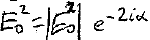 Ẽ₀² = |Ẽ₀|² e^{-2iα}